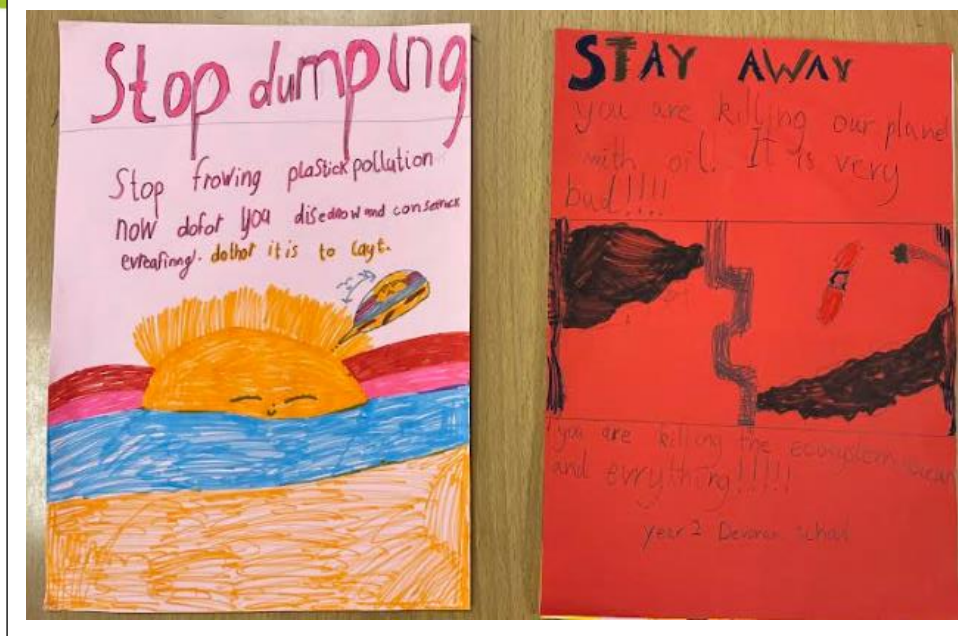 Stop dumping
Stop frowing plastick pollution
now dofor you disednow and
evreafinng. dothor it is to layt.
STAY AWAY
you are killing our plane
with oil. It is very
bad!!!!
you are killing the ecosystem
and evrything!!!!!
year 2 Devoran school